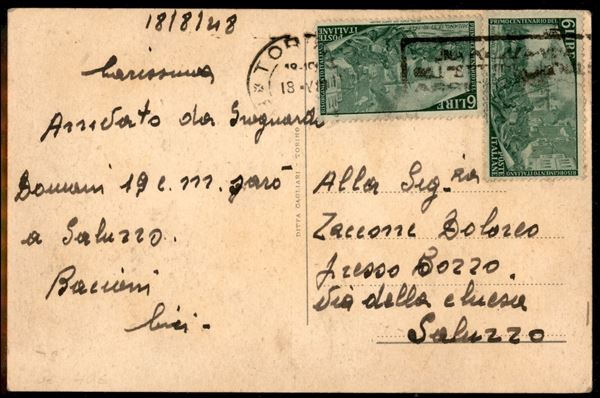 18/8/48
Carissima
Arrivato da
Domani 19 c. m. sarò
a Saluzzo.
Bacioni
TOR
18-
DITTA CAGLIARI - TORINO
6 LIRE
POSTE ITALIANE
PRIMO CENTENARIO DEL
RISORGIMENTO ITALIANO
6 LIRE
POSTE ITALIANE
Alla Sig.ra
Zaccone Dolores
Presso Bozzo
Via della chiesa
Saluzzo